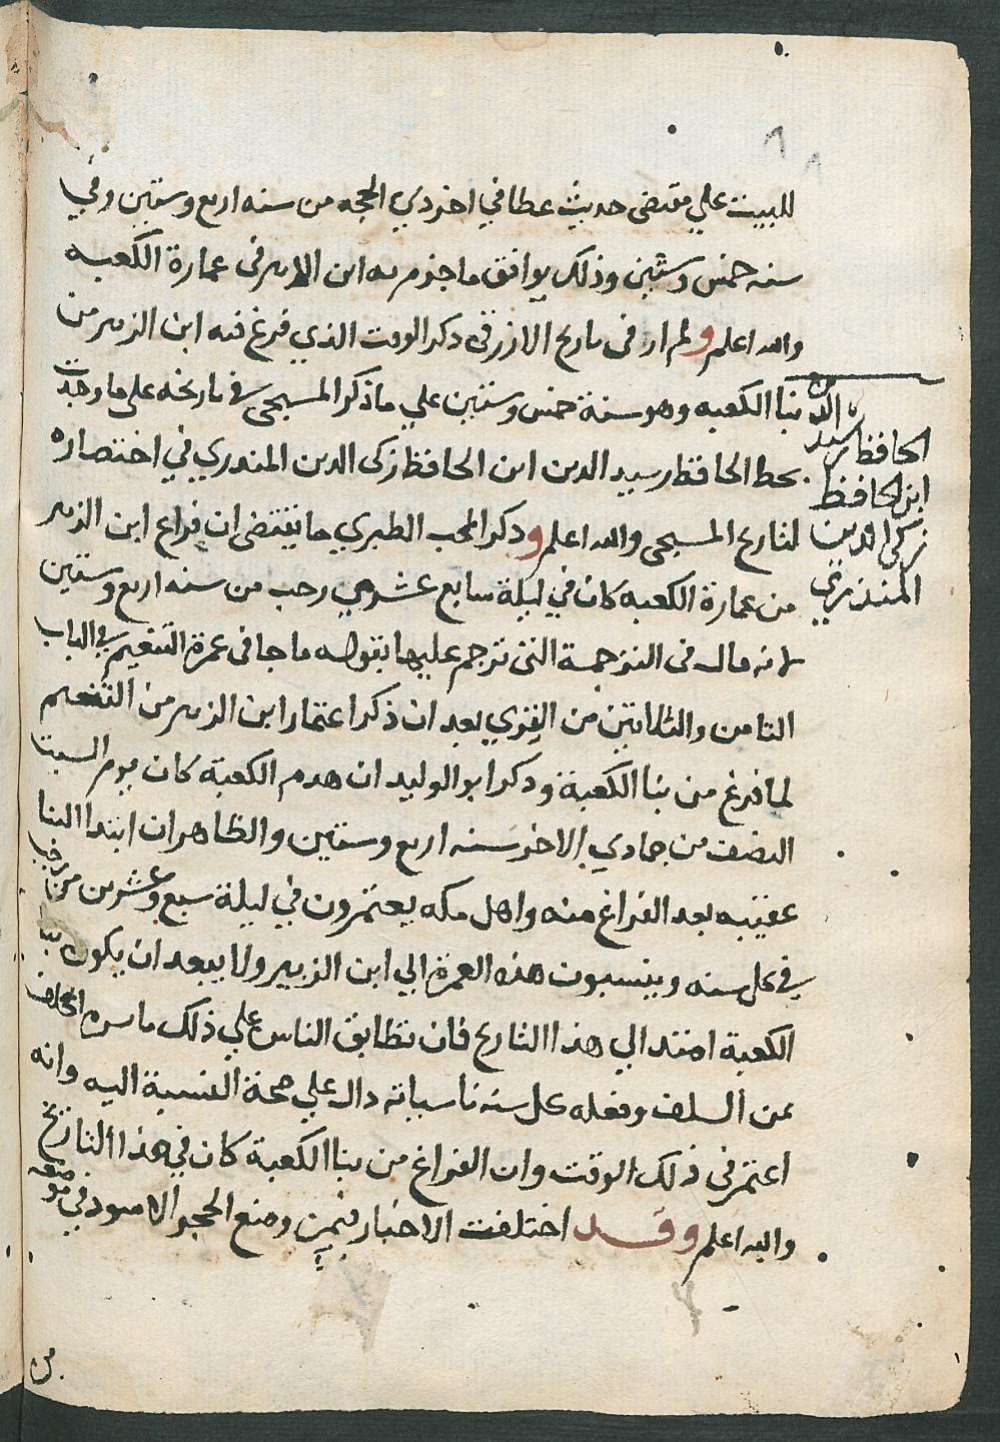 للبيت علي مقتضى حديث عطا في اخر ذي الحجه من سنه اربع وستين وفي
سنه خمس وستين وذلك يوافق ما جزم به ابن الاثير في عمارة الكعبه
والله اعلم ولم ار في تاريخ الازرقي ذكر الوقت الذي فرغ فيه ابن الزبير من
بنا الكعبه وهو سنة خمس وستين علي ما ذكر المسبحي في تاريخه على ما وجدت
بخط الحافظ رسيد الدين ابن الحافظ زكى الدين المنذري في اختصاره
الحافظ رسيد الدين
ابن الحافظ
زكى الدين
المنذري
لتاريخ المسبحي والله اعلم وذكر المحب الطبري ما يقتضى ان فراغ ابن الزبير
من عمارة الكعبه كان في ليلة سابع عشري رجب من سنه اربع وستين
لانه قال في الترجمة التى ترجم عليها بقوله ما جا في عمرة التنعيم في الباب
الثامن والثلاثين من القري بعد ان ذكر اعتمار ابن الزبير من التنعيم
لما فرغ من بنا الكعبة وذكر ابو الوليد ان هدم الكعبة كان يوم السبت
النصف من جمادي الاخر سنه اربع وستين والظاهر ان ابتدا البنا
عقيبه بعد الفراغ منه واهل مكه يعتمرون في ليلة سبع وعشرين من رجب
في كل سنه وينسبون هذه العمرة الي ابن الزبير ولا يبعد ان يكون بنا
الكعبة امتد الي هذا التاريخ فان تطابق الناس علي ذلك ما سره الخلف
عن السلف وفعله كل سنه تاسيا به دال علي صحة النسبة اليه وانه
اعتمر في ذلك الوقت وان الفراغ من بنا الكعبة كان في هذا التاريخ
والله اعلم وقد اختلفت الاخبار فيمن وضع الحجر الاسود في موضعه
من